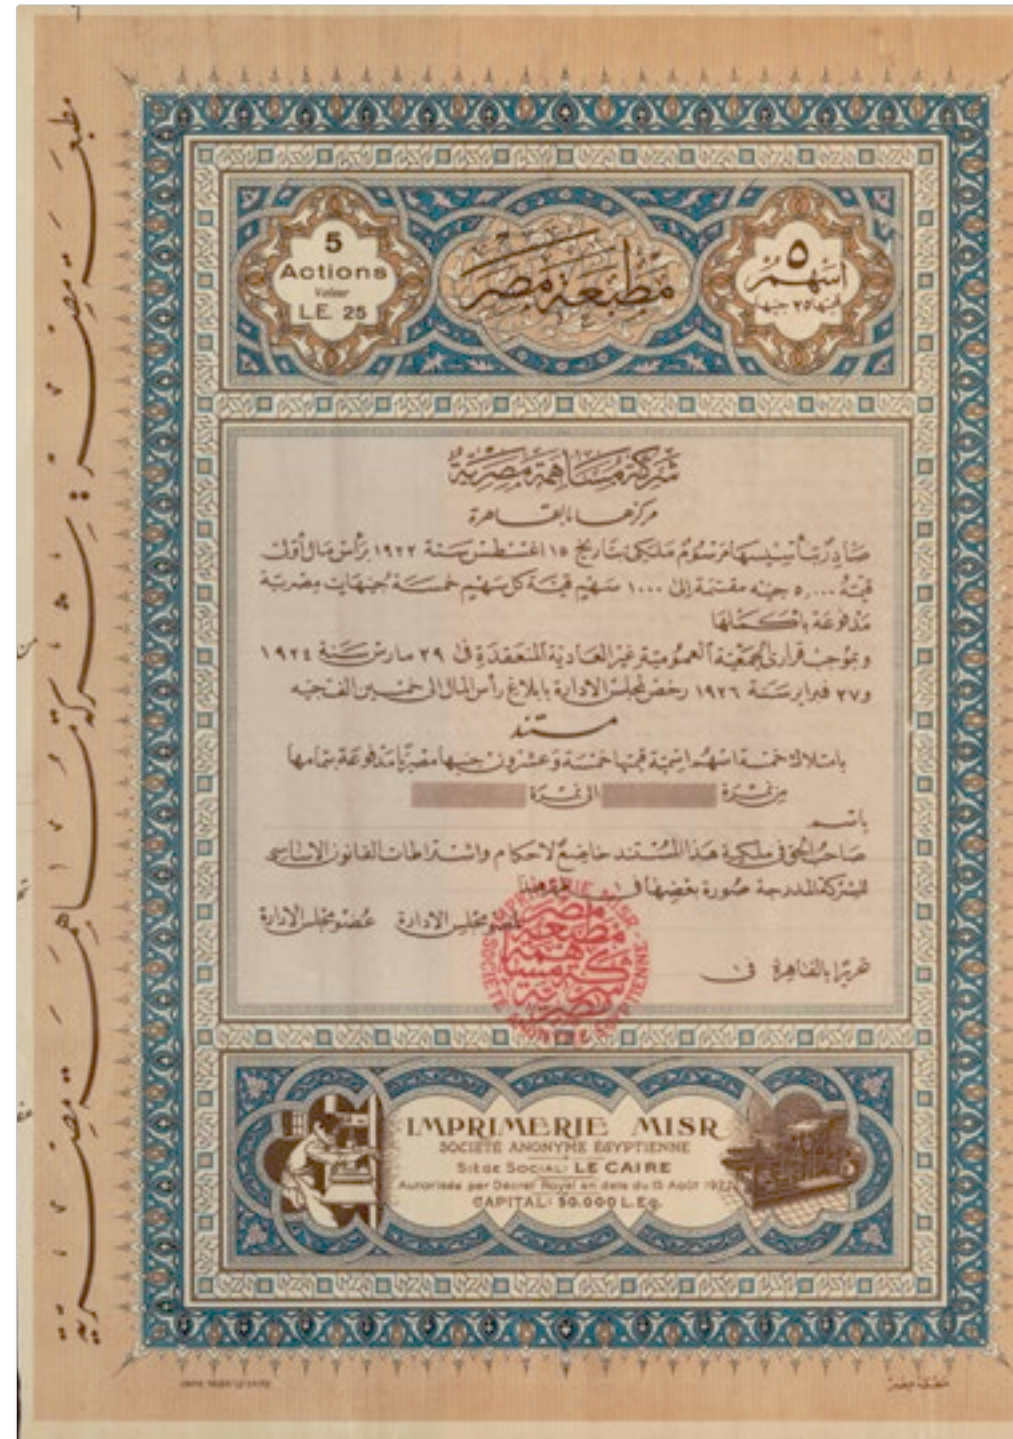 5
Actions
Valeur
L.E. 25
مطبعة مصر
٥
أسهم
قيمتها ٢٥ جنيها
شركة مساهمة مصرية
مركزها بالقاهرة
صادر بتأسيسها مرسوم ملكى بتاريخ ١٥ اغسطس سنة ١٩٢٢ برأس مال أولى
قيمته ٥,٠٠٠ جنيه مقسمة إلى ١٠٠٠ سهم قيمة كل سهم خمسة جنيهات مصرية
مدفوعة بأكملها
وبموجب قرارى الجمعية العمومية غير العادية المنعقدة فى ٢٩ مارس سنة ١٩٢٤
و٢٧ فبراير سنة ١٩٢٦ رخص لمجلس الادارة بابلاغ رأس المال الى خمسين الف جنيه
مستند
بامتلاك خمسة اسهم اسمية قيمتها خمسة وعشرون جنيها مصريا مدفوعة بتمامها
من نمرة الى نمرة
باسم
صاحب الحق فى ملكية هذا المستند خاضع لاحكام واشتراطات القانون الاساسى
للشركة المدرجة صورة بعضها فى
عضو مجلس الادارة عضو مجلس الادارة
تحريرا بالقاهرة فى
IMPRIMERIE MISR
SOCIÉTÉ ANONYME EGYPTIENNE
مطبعة مصر
شركة مساهمة
مصرية
IMPRIMERIE MISR
SOCIÉTÉ ANONYME ÉGYPTIENNE
SIÈGE SOCIAL: LE CAIRE
Autorisée par Décret Royal en date du 15 Août 1922
CAPITAL: 50.000 L.Eg.
مطبعة مصر شركة مساهمة مصرية
مطبعة مصر